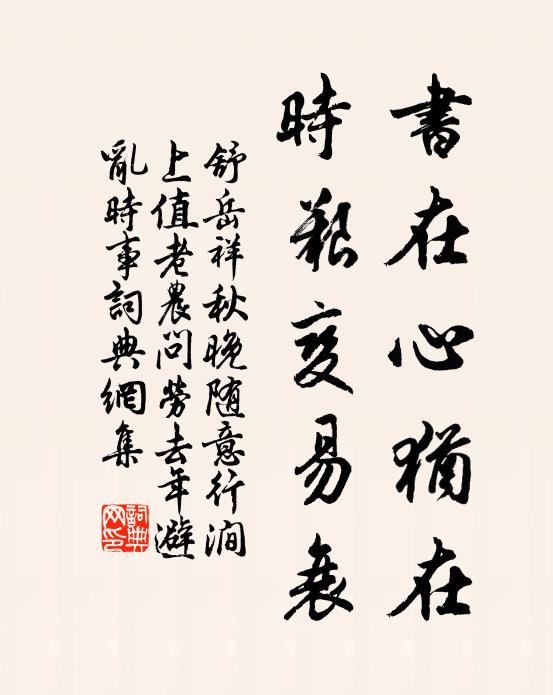 書在心猶在
時艱变易衰
舒岳祥秋晚随意行澗
上值老農问勞去年避
亂時事詞典網集
詞典
网印